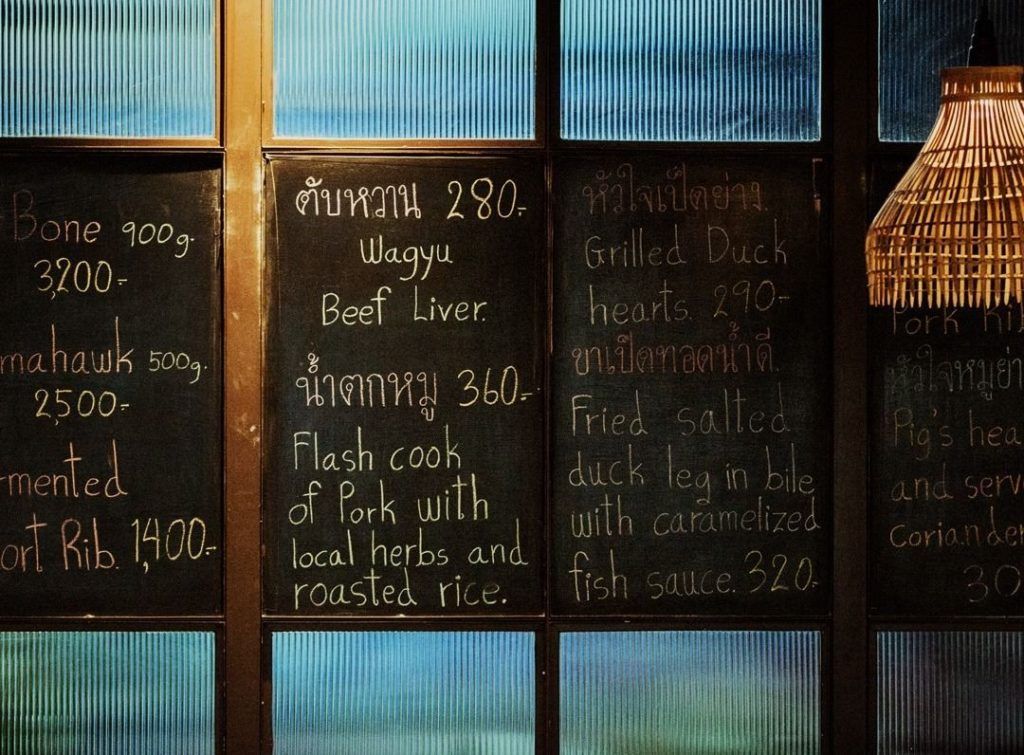 Bone 900g.
3,200.-
mahawk 500g.
2,500.-
rmented
ort Rib. 1,400.-
ตับหวาน 280.-
Wagyu
Beef Liver.
น้ำตกหมู 360.-
Flash cook
of Pork with
local herbs and
roasted rice.
หัวใจเป็ดย่าง.
Grilled Duck
hearts. 290.-
ขาเป็ดทอดน้ำดี.
Fried salted
duck leg in bile
with caramelized
fish sauce. 320.-
Pork Rib
หัวใจหมูย่า
Pig's hea
and serv
Coriander
30